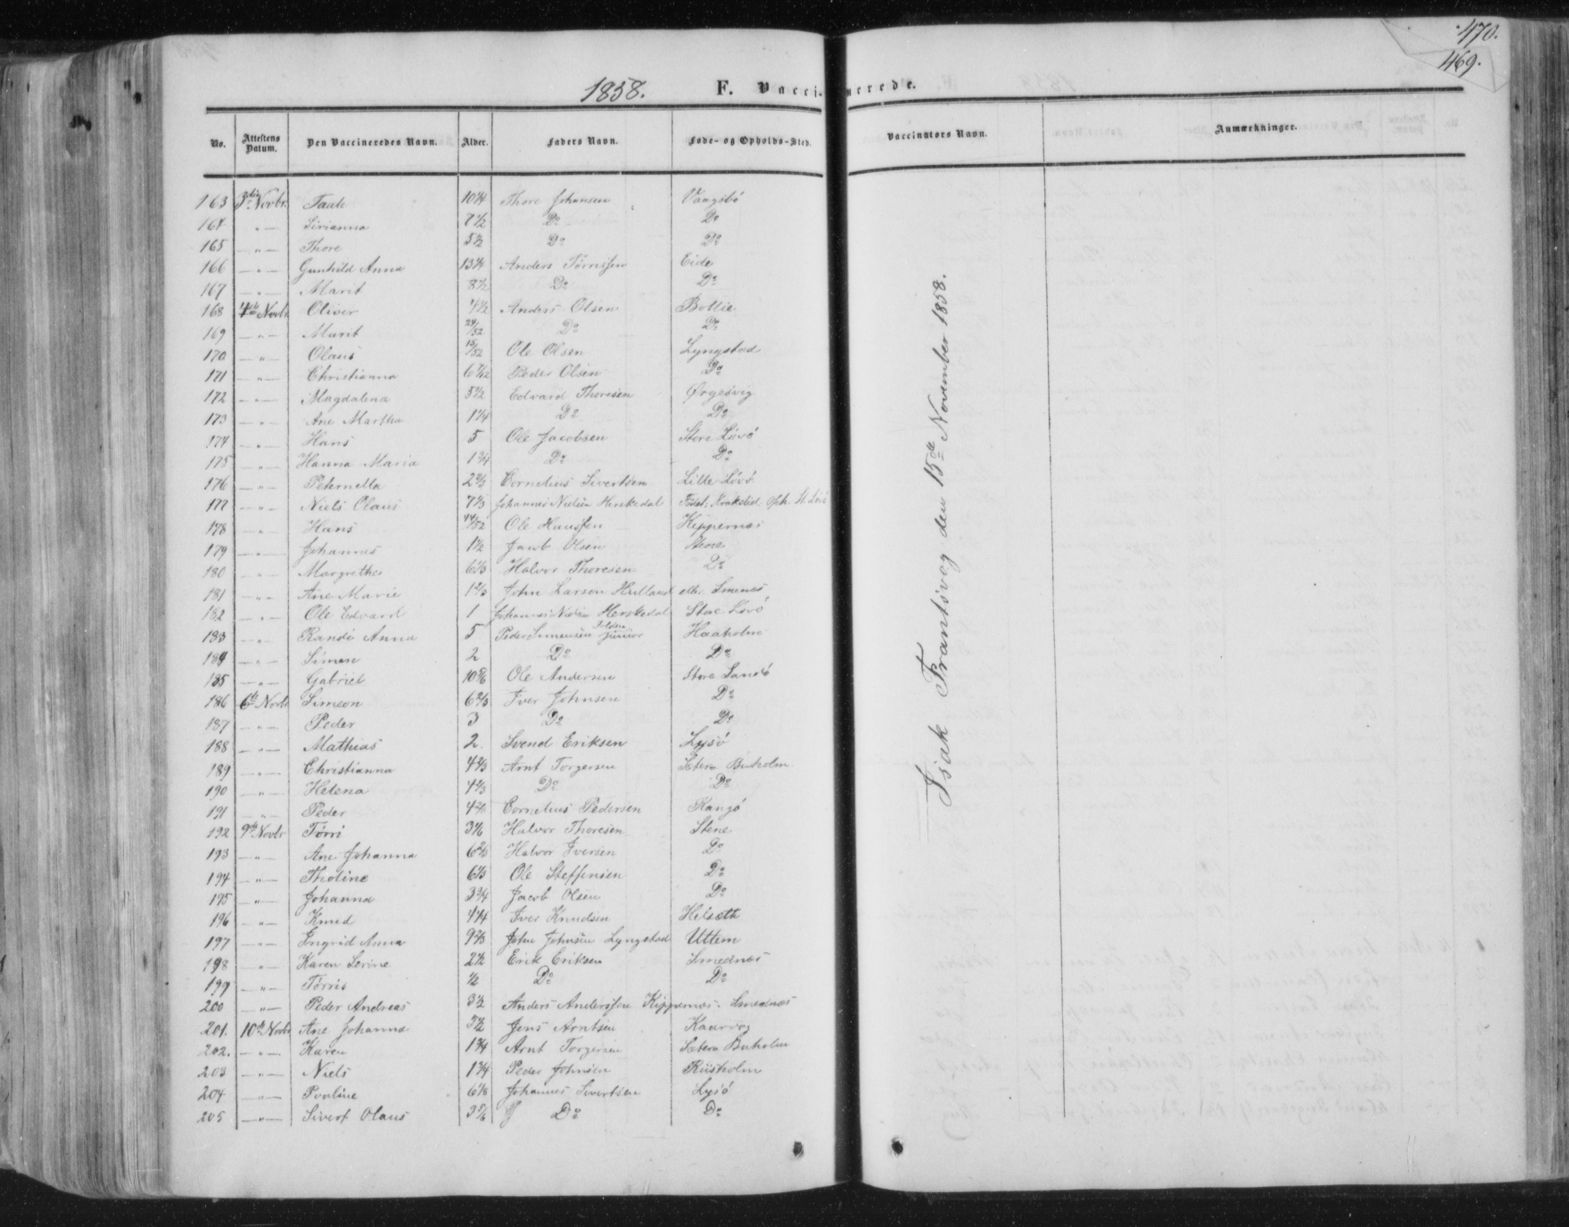 470.
469.
1858. F. Vaccinerede.
No. Attestens Datum. Den Vaccineredes Navn. Alder. Faders Navn. Føde- og Opholds-Sted. Vaccinators Navn. Anmærkninger.
163 3die Novbr. Taale 10 1/4 Thore Johansen Vaagsbø
164 — " — Sirianna 7 1/2 Do Do
165 — " — Thore 5 1/2 Do Do
166 — " — Gunhild Anna 13 1/4 Anders Eide
167 — " — Marit 8 1/2 Do Do
168 4de Novbr. Oliver 4 1/2 Anders Olsen
169 — " — Marit Do Do
170 — " — Olaus Ole Olsen Lyngstad
171 — " — Christianna Peder Olsen Do
172 — " — Magdalena 5 1/2 Edvard Thoresen Ørgesvig
173 — " — Ane Martha 1 1/4 Do Do
174 — " — Hans 5 Ole Jacobsen Store Løvø
175 — " — Hanna Maria 1 3/4 Do Do
176 — " — Peternella 2 2/3 Cornelius Sivertsen Lille Løvø
177 — " — Niels Olaus 7 1/3 Johannes Nielsen
178 — " — Hans 44/52 Ole Hansen Kippernæs
179 — " — Johannes 1 1/2 Jacob Olsen Stene
180 — " — Margrethe 6 1/3 Halvor Thoresen Do
181 — " — Ane Marie 1 2/3 John Larsen
182 — " — Ole Edvard 1 Johannes Nielsen Store Løvø
183 — " — Randi Anna 5 Peder Simensen Junior Haaholm
184 — " — Simon 2 Do Do
185 — " — Gabriel 10 5/6 Ole Andersen Store Sandø
186 6te Novbr Simeon 6 2/3 Iver Johnsen Do
187 — " — Peder 3 Do Do
188 — " — Mathias 2. Svend Eriksen Lysø
189 — " — Christianna 4 2/3 Arnt Torgersen Buholm
190 " — Helena 4 2/3 Do Do
191 " Peder Cornelius Pedersen
192 9de Novbr Tørri 3 1/6 Halvor Thoresen Stene
193 — " — Ane Johanna 6 2/3 Halvor Iversen Do
194 — " — Tholine 6 1/3 Ole Steffensen Do
195 — " — Johanna 3 3/4 Jacob Olsen Do
196 " — Knud 4 1/4 Iver Knudsen Helsæth
197 — " — Ingrid Anna 9 2/3 John Johnsen Lyngstad Uttem
198 — " — Karen Serine 2 1/2 Erik Eriksen Smednæs
199 — " — Tørris 1/2 Do Do
200 — " — Peder Andreas 3 1/2 Anders Anderssen Kippernæs. Smednæs
201. 10de Novbr Ane Johanna Jens Arntsen Kaarvog
202. — " — Karen 1 3/4 Arnt Torgersen Buholm
203 — " — Niels 1 3/4 Peder Johnsen Riisholm
204 — " — Pauline 6 1/8 Johannes Sivertsen Lysø
205 — " — Sivert Olaus 3 5/6 Do Do
Isak Frantsvog den 15de November 1858.